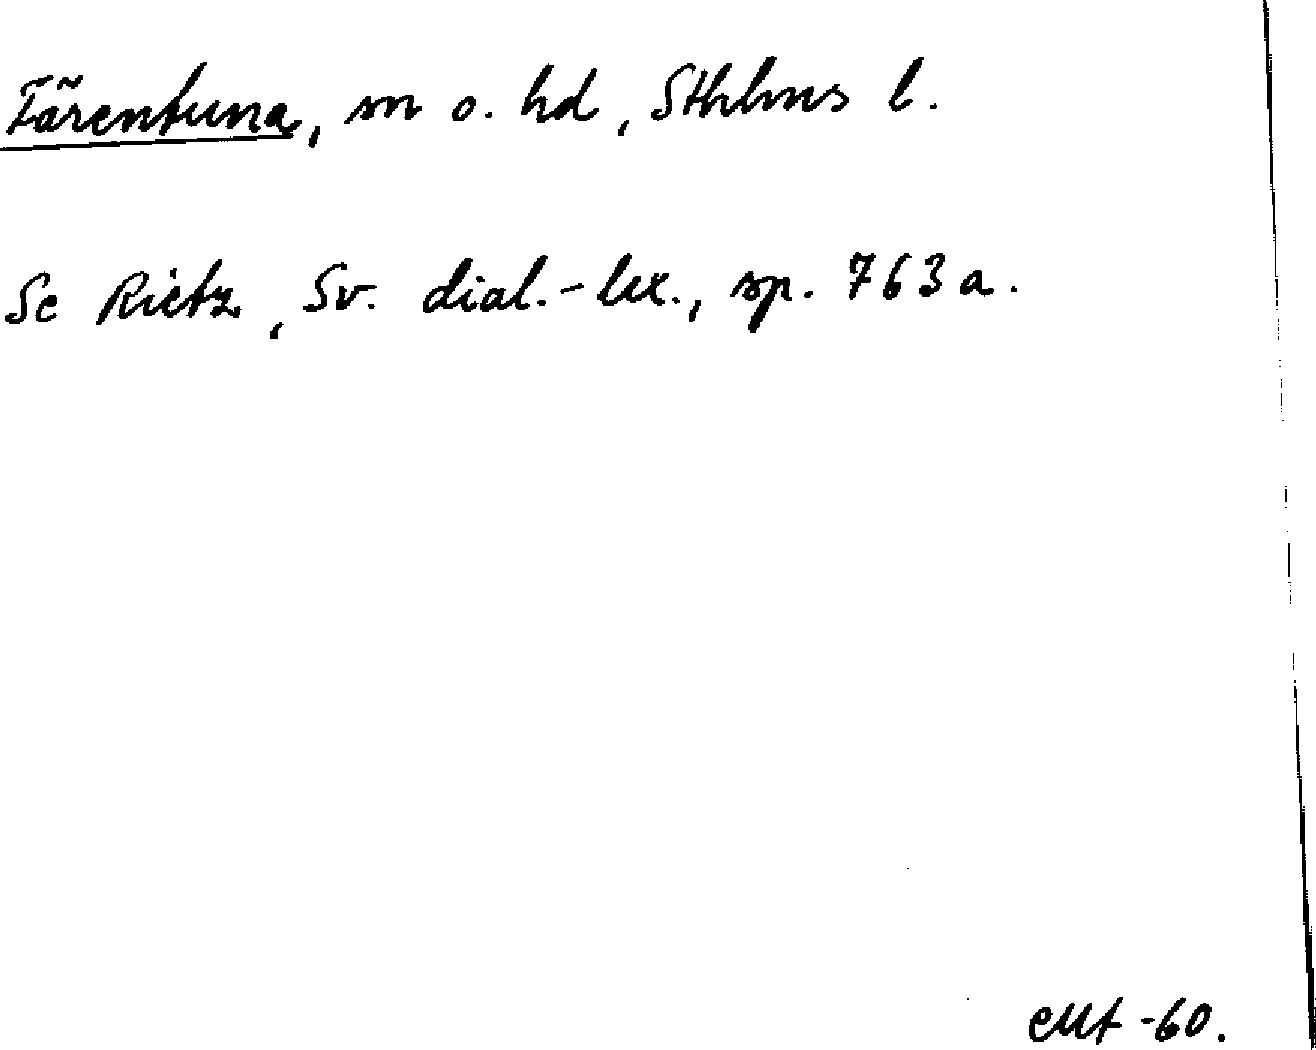 Färentuna, sn o. hd, Sthlms l.
Se Rietz, Sv. dial.-lex., sp. 763a.
-60.